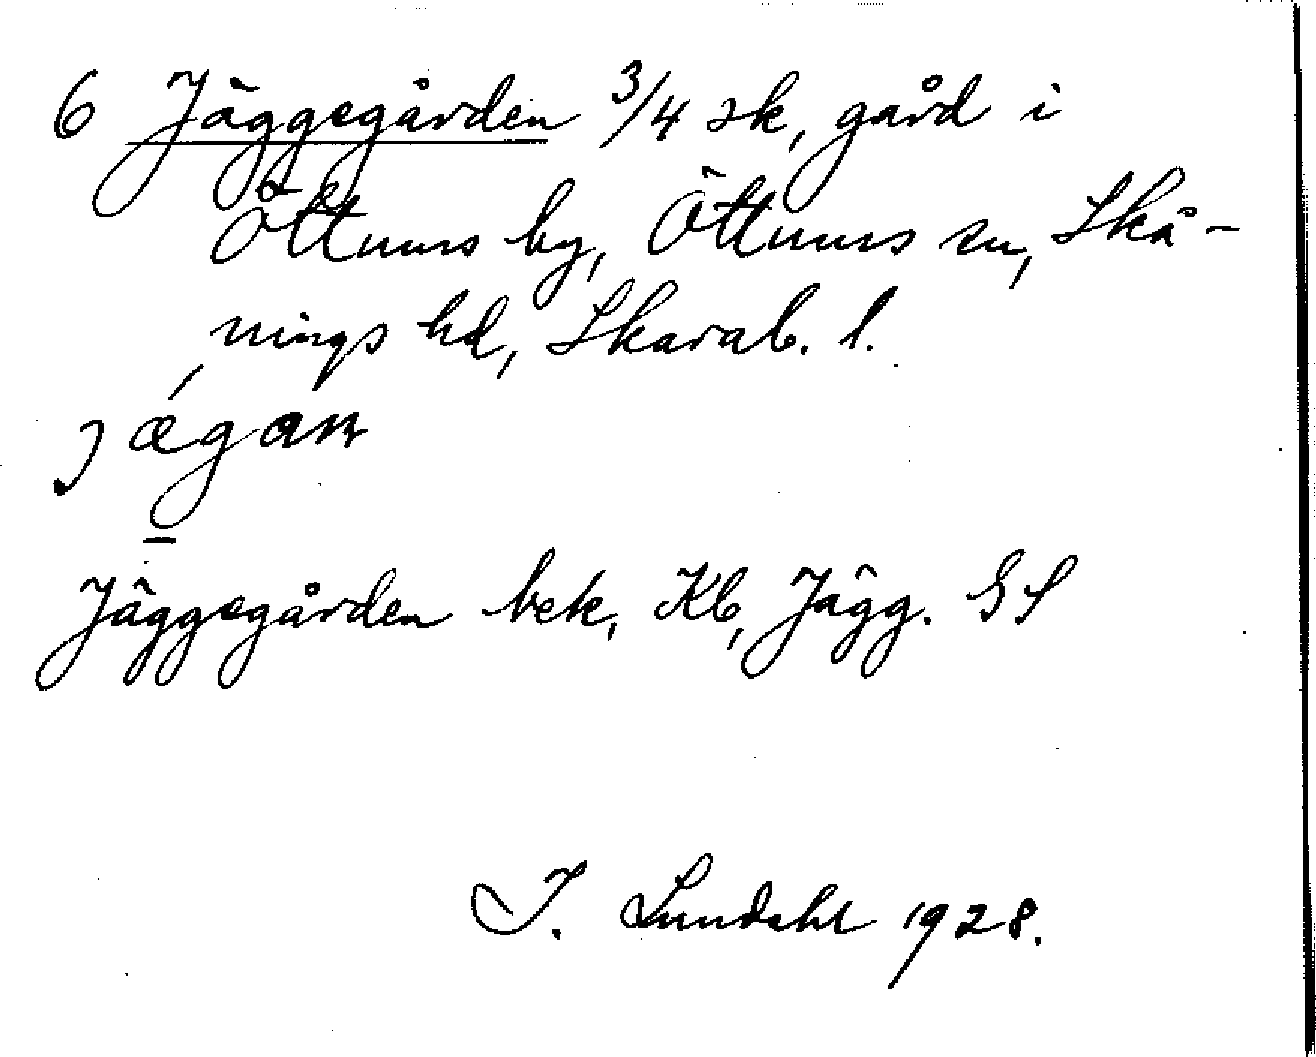 6 Jäggegården 3/4 sk, gård i
Öttums by, Öttums sn, Skå-
nings hd, Skarab. l.
jǽgan
Jäggegården bek, Kb, Jägg. GS
I. Lundahl 1928.